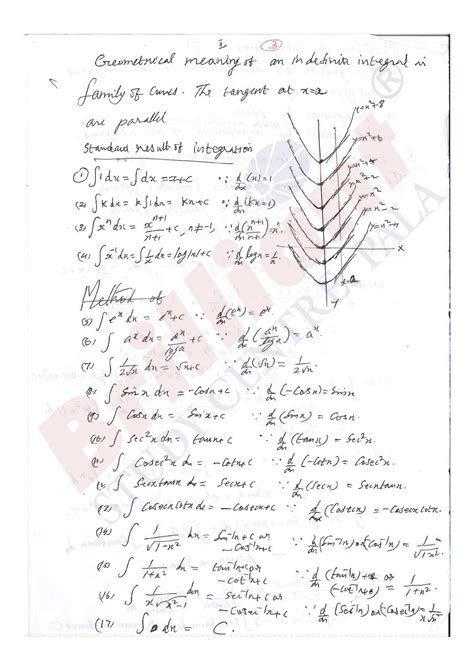 I
3
Geometrical meaning of an indefinite integral is
family of curves. The tangent at x=a
are parallel
Standard result of integration
(1) ∫1dx = ∫dx = x+c ∵ d/dx (x) = 1
(2) ∫k dx = k∫1dx = kx+c ∵ d/dx (kx = k)
(3) ∫xⁿ dx = xⁿ⁺¹/n+1 + c, n≠-1, ∵ d/dx (xⁿ⁺¹/n+1) = xⁿ
(4) ∫x⁻¹dx = ∫1/x dx = log|x|+c ∵ d/dx logx = 1/x
y=x²+8
y=x²+6
y=x²+4
y=x²+2
y=x²
y=x²-2
x
x=a
y
Method of
(5) ∫eˣ dx = eˣ+c ∵ d/dx (eˣ) = eˣ
(6) ∫ aˣ dx = aˣ/loga + c ∵ d/dx (aˣ/loga) = aˣ
(7) ∫ 1/2√x dx = √x+c ∵ d/dx (√x) = 1/2√x
(8) ∫ Sinx dx = -Cosx+c ∵ d/dx (-Cosx) = Sinx
(9) ∫ Cosx dx = Sinx+c ∵ d/dx (Sinx) = Cosx.
(10) ∫ Sec²x dx = tanx+c ∵ d/dx (tanx) = Sec²x.
(11) ∫ Cosec²x dx = -cotx+c ∵ d/dx (-Cotx) = Cosec²x.
(12) ∫ Secxtanx dx = Secx+c ∵ d/dx (Secx) = Secxtanx.
(13) ∫ Cosecxcotx dx = -Cosecx+c ∵ d/dx (Cosecx) = -Cosecxcotx.
(14) ∫ 1/√1-x² dx = Sin⁻¹x+c or -Cos⁻¹x+c ∵ d/dx (Sin⁻¹x) or (-Cos⁻¹x) = 1/√1-x²
(15) ∫ 1/1+x² dx = tan⁻¹x+c or -cot⁻¹x+c ∵ d/dx (tan⁻¹x) or (-cot⁻¹x) = 1/1+x²
(16) ∫ 1/x√x²-1 dx = Sec⁻¹x+c or -Cosec⁻¹x+c ∵ d/dx (Sec⁻¹x) or (-Cosec⁻¹x) = 1/x√x²-1
(17) ∫ 0 dx = C.
Brilliant
STUDY CENTRE PALA
®